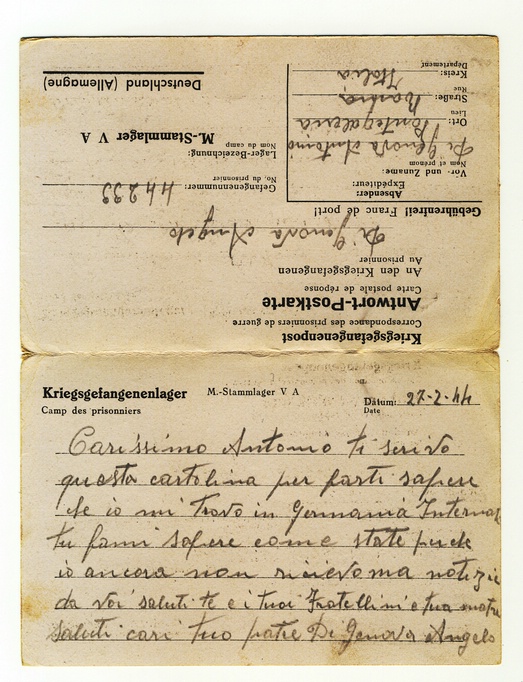 Kriegsgefangenenpost
Correspondance des prisonniers de guerre
Antwort-Postkarte
Carte postale de réponse
An den Kriegsgefangenen
Au prisonnier
Di Genova Angelo
Gebührenfrei! Franc de port!
Absender:
Expéditeur:
Vor- und Zuname:
Nom et prénom
Di Genova Antonio
Ort: Pontegaleria
Lieu
Straße:
Rue
Kreis: Italia
Département
Gefangenennummer: 44233
No. du prisonnier
Lager-Bezeichnung:
Nom du camp
M.-Stammlager V A
Deutschland (Allemagne)
Kriegsgefangenenlager M.-Stammlager V A
Camp des prisonniers
Datum: 27-2-44
Date
Carissimo Antonio ti scrivo
questa cartolina per farti sapere
che io mi trovo in Germania Internat
tu fami sapere come state perche
io ancora non ricievo ma notizie
da voi saluti te e i tuoi Fratellini e tua matre
saluti cari tuo patre Di Genova Angelo